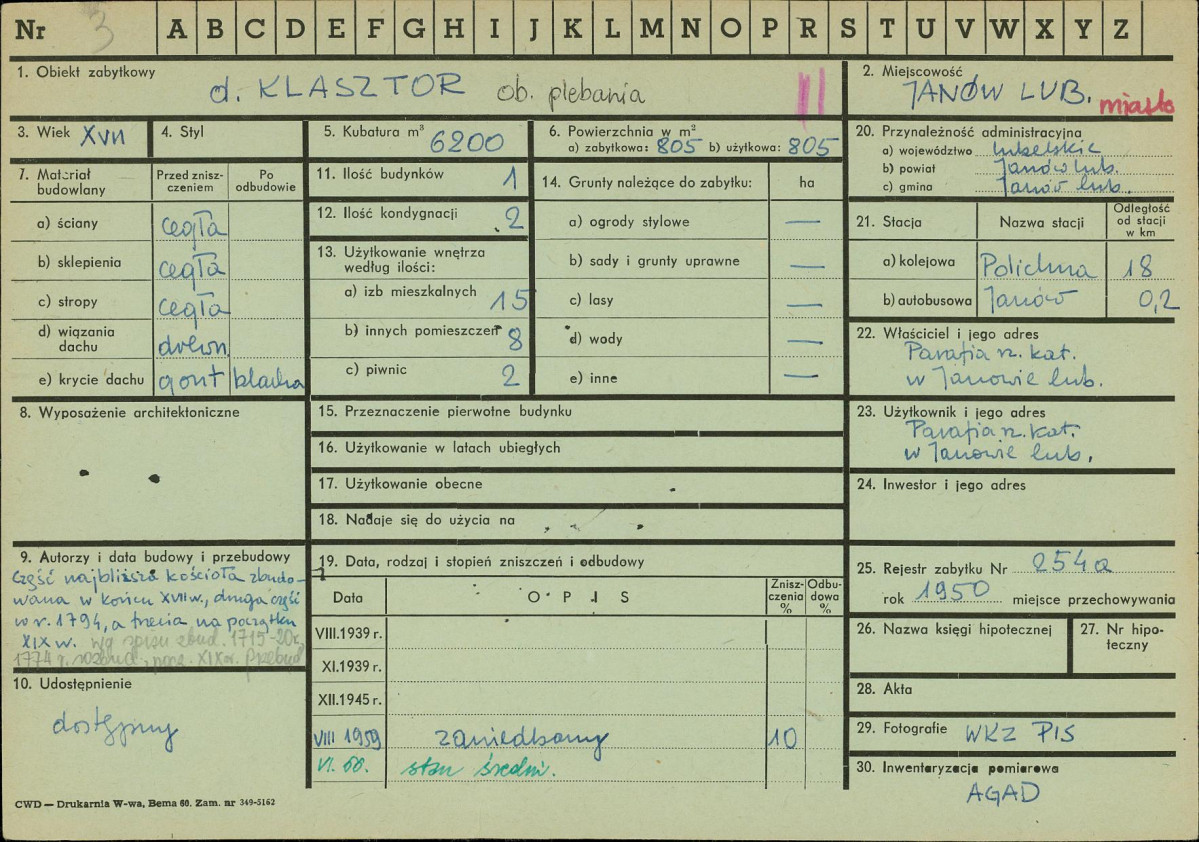 Nr 3 A B C D E F G H I J K L M N O P R S T U V W X Y Z
1. Obiekt zabytkowy
d. KLASZTOR ob. plebania II
2. Miejscowość
JANÓW LUB. miasto
3. Wiek XVII
4. Styl
5. Kubatura m³
6200
6. Powierzchnia w m²
a) zabytkowa: 805 b) użytkowa: 805
7. Materiał budowlany
Przed zniszczeniem
Po odbudowie
a) ściany cegła
b) sklepienia cegła
c) stropy cegła
d) wiązania dachu drewn.
e) krycie dachu gont blacha
8. Wyposażenie architektoniczne
9. Autorzy i data budowy i przebudowy
Część najbliższa kościoła zbudo-
wana w końcu XVII w., druga część
w r. 1794, a trzecia na początku
XIX w. wg spisu zbud. 1715-20r.
1774 r. rozbud., pocz. XIX w. przebud.
10. Udostępnienie
dostępny
CWD — Drukarnia W-wa, Bema 60. Zam. nr 349-5162
11. Ilość budynków 1
12. Ilość kondygnacji 2
13. Użytkowanie wnętrza
według ilości:
a) izb mieszkalnych 15
b) innych pomieszczeń 8
c) piwnic 2
14. Grunty należące do zabytku: ha
a) ogrody stylowe —
b) sady i grunty uprawne —
c) lasy —
d) wody —
e) inne —
15. Przeznaczenie pierwotne budynku
16. Użytkowanie w latach ubiegłych
17. Użytkowanie obecne
18. Nadaje się do użycia na
19. Data, rodzaj i stopień zniszczeń i odbudowy
Data
O P I S
Zniszczenia %
Odbudowa %
VIII.1939 r.
XI.1939 r.
XII.1945 r.
VIII 1959 zaniedbany 10
VI. 60. stan średni.
20. Przynależność administracyjna
a) województwo lubelskie
b) powiat Janów lub.
c) gmina Janów lub.
21. Stacja
Nazwa stacji
Odległość od stacji w km
a) kolejowa Polichna 18
b) autobusowa Janów 0,2
22. Właściciel i jego adres
Parafia rz. kat.
w Janowie lub.
23. Użytkownik i jego adres
Parafia rz. kat.
w Janowie lub.
24. Inwestor i jego adres
25. Rejestr zabytku Nr 254a
rok 1950 miejsce przechowywania
26. Nazwa księgi hipotecznej
27. Nr hipo-
teczny
28. Akta
29. Fotografie WKZ PIS
30. Inwentaryzacja pomiarowa
AGAD